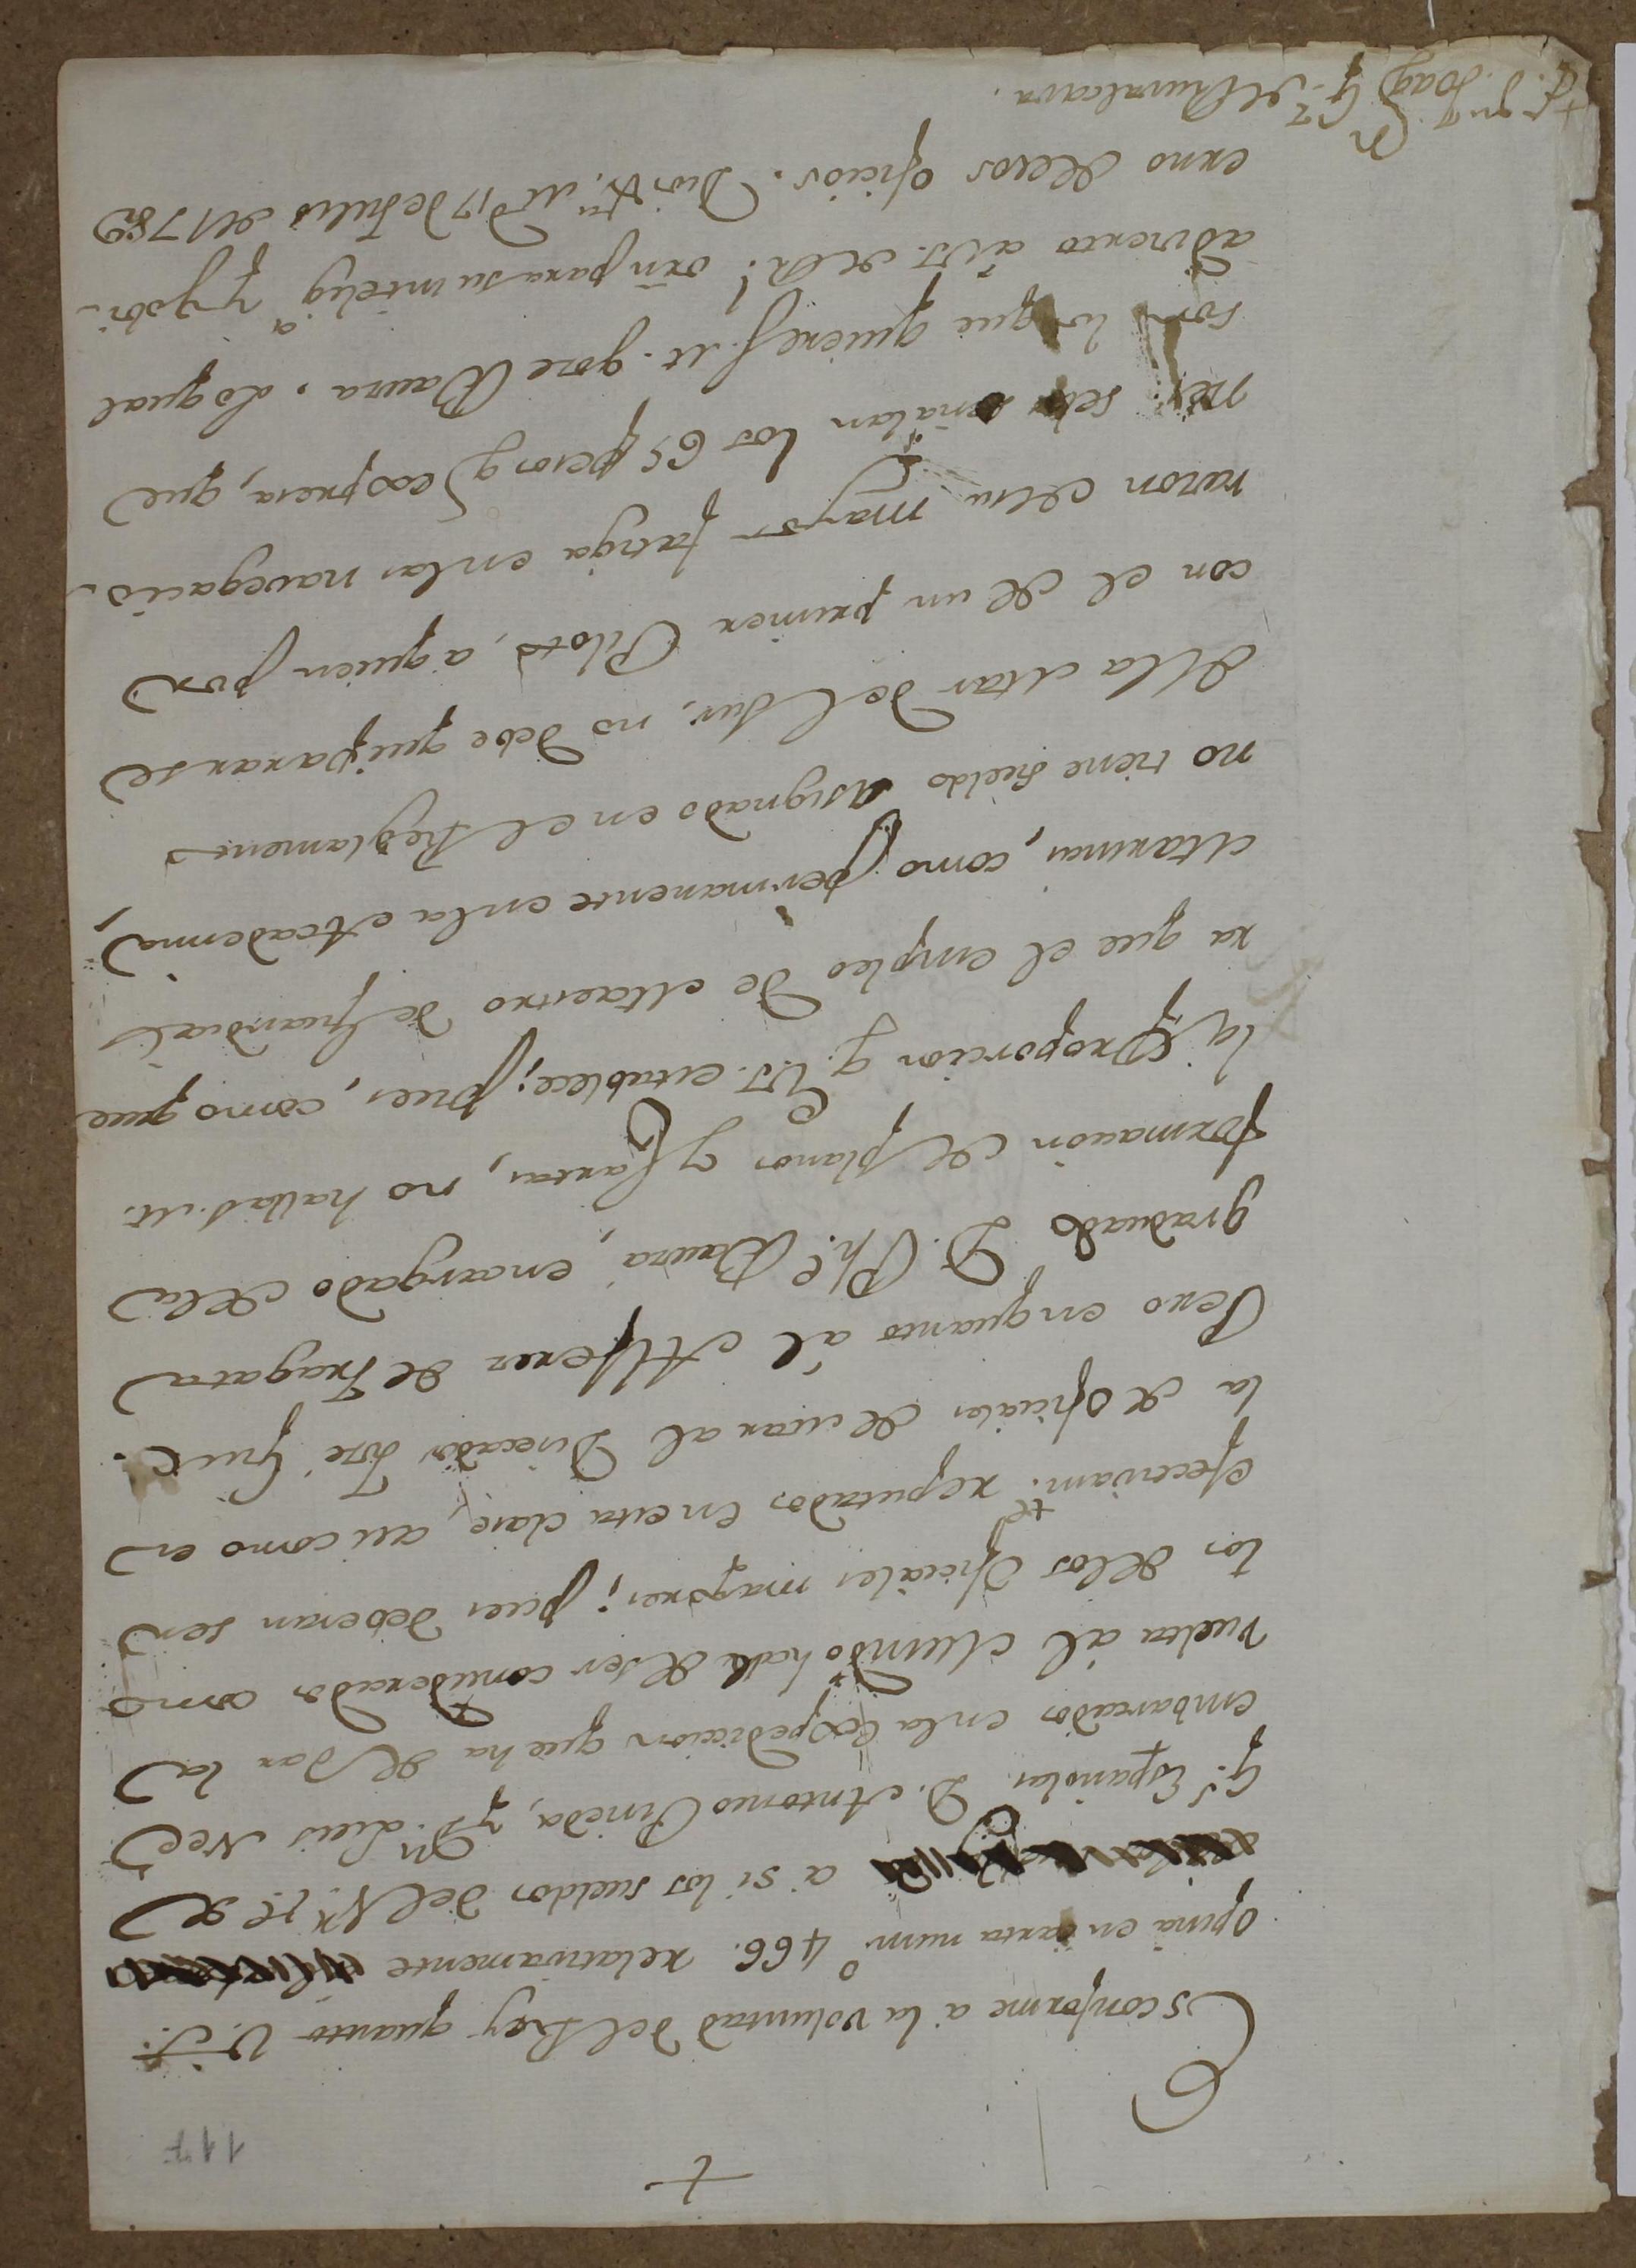 117
+
Es conforme a la voluntad del Rey quanto V.S.
opina en carta num.o 466. relativamente
a si los sueldos del N.
G.s Españolas D. Antonio Pineda, y D.n Luis Neé
embarcados en la Expedicion que ha de dar la
vuelta al Mundo han de ser considerados como
los de los oficiales mayores; pues deberan ser
efectivam.te reputados en esta clase, asi como en
la de oficiales de mar al Disecador José Guio.
Pero en quanto al Alferez de Fragata
graduado D. Ph.e Bauzá, encargado de la
formacion de planos y Cartas, no halla S.M.
la proporcion q. V.S. establece; pues, como quie
ra que el empleo de Maestro de Guardias
Marinas, como permanente en la Academia,
no tiene sueldo asignado en el Reglamento
de la Mar del Sur, no debe equipararse
con el de un primer Piloto, a quien por
razon de su mayor fatiga en las navegacio-
nes se le señalan los 65 pesos q.e expresa, que
son los que quiere S.M. goze Bauza. Lo qual
advierto a V.S. de R.l orn para su intelig.a y gobi-
erno de esos oficios. Dios &.a M.d 17 de Julio de 1789
S.r D.n Joaq.n G.z de Ruvalcava.